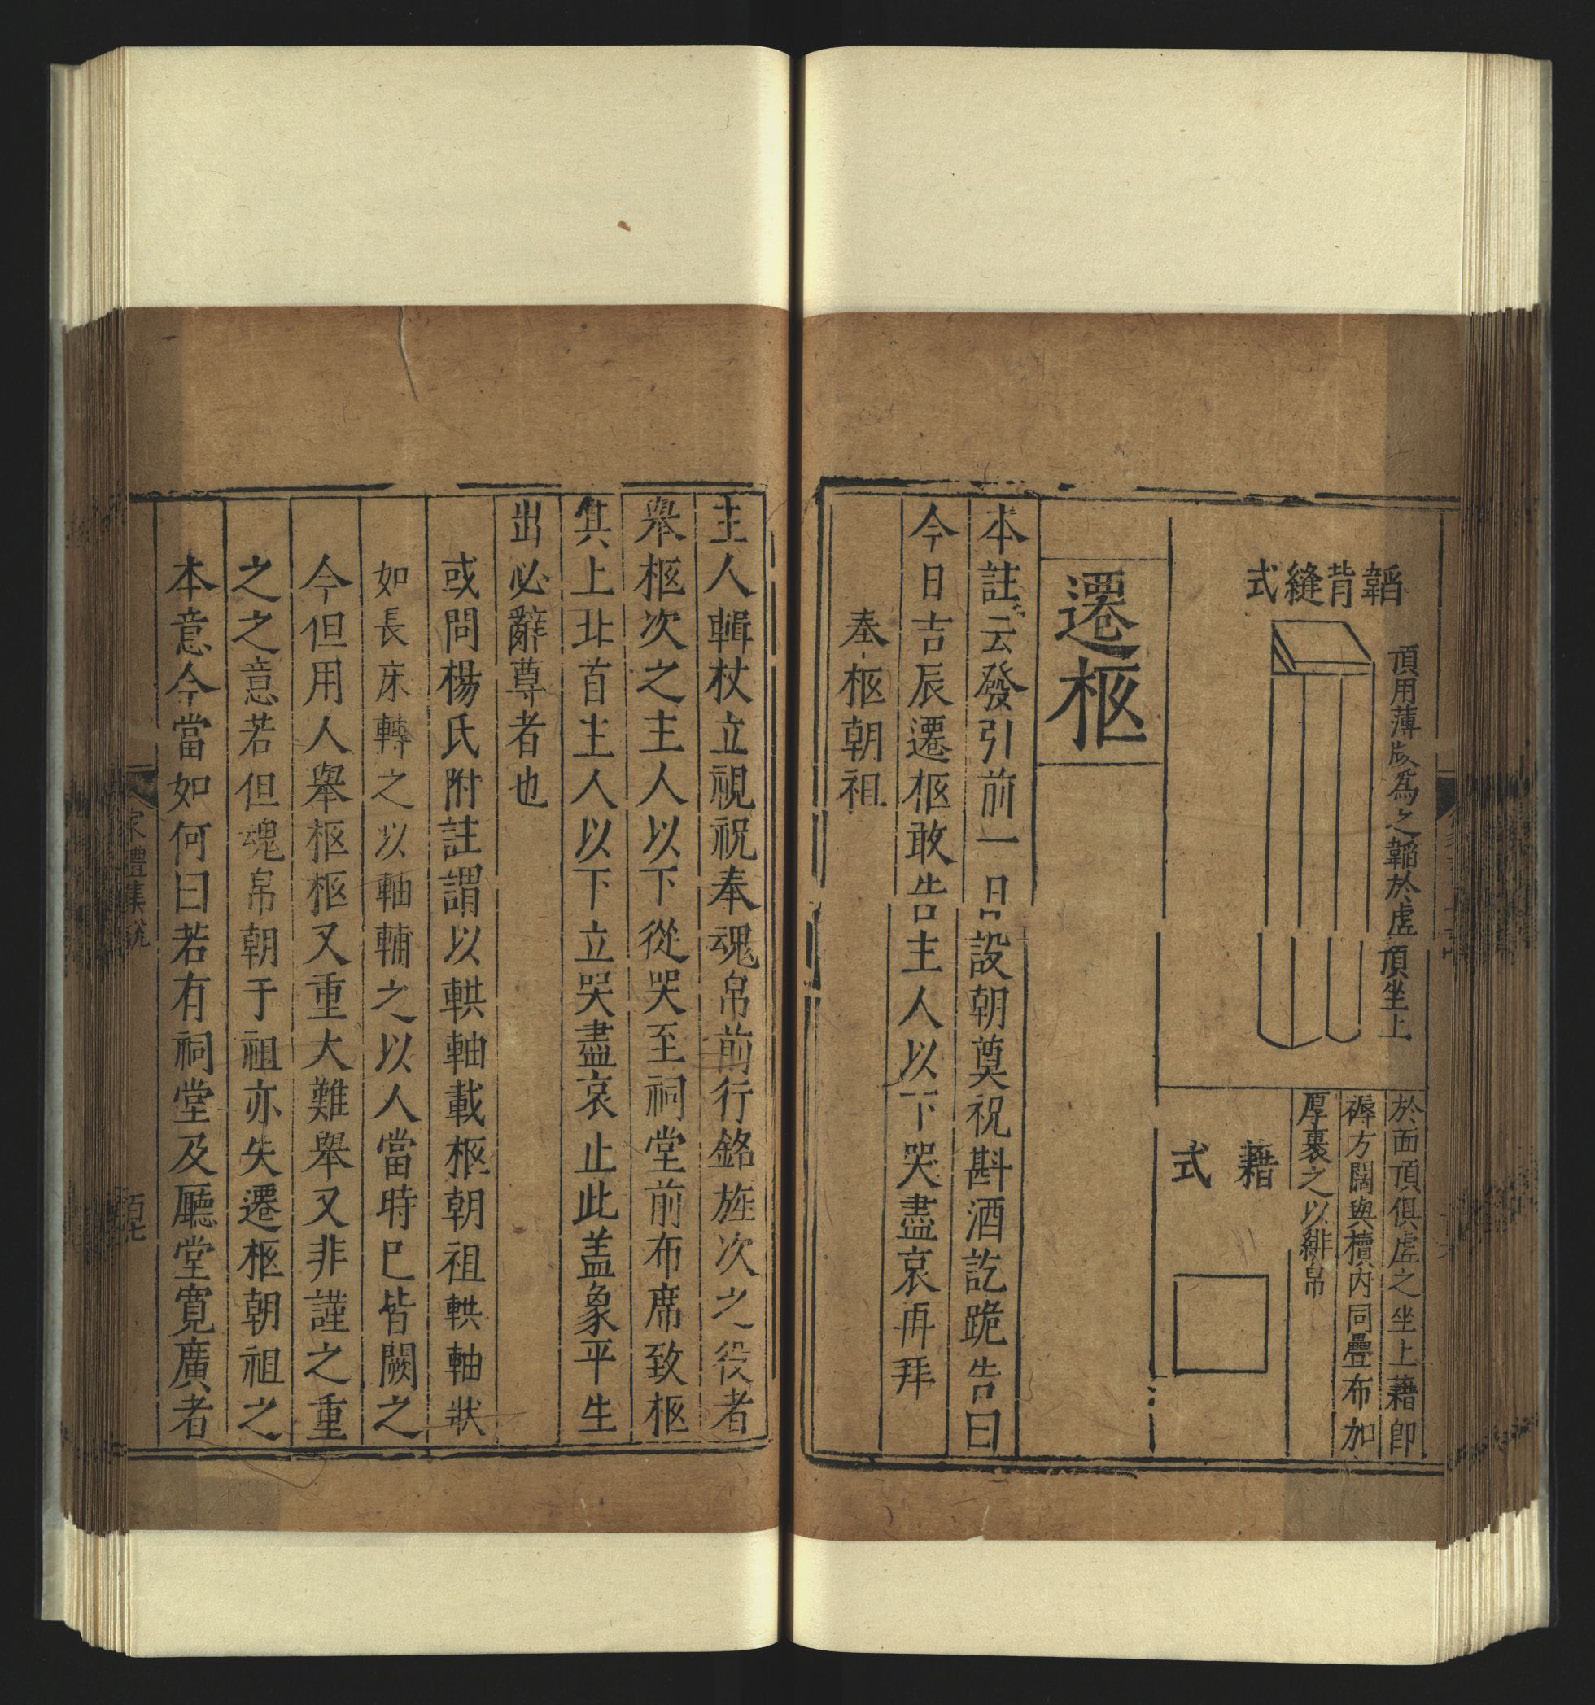 韜背縫式
頂用薄版為之韜於虛頂坐上
於面頂俱虛之坐上藉即
褥方闊與櫝內同疊布加
厚裹之以緋帛
藉式
遷柩
本註云發引前一日設朝奠祝斟酒訖跪告曰
今日吉辰遷柩敢告主人以下哭盡哀再拜
奉柩朝祖
主人輯杖立視祝奉魂帛前行銘旌次之役者
舉柩次之主人以下從哭至祠堂前布席致柩
其上北首主人以下立哭盡哀止此盖象平生
出必辭尊者也
或問楊氏附註謂以輁軸載柩朝祖輁軸狀
如長床轉之以軸輔之以人當時已皆闕之
今但用人舉柩柩又重大難舉又非謹之重
之之意若但魂帛朝于祖亦失遷柩朝祖之
本意今當如何曰若有祠堂及廳堂寬廣者
家禮集說